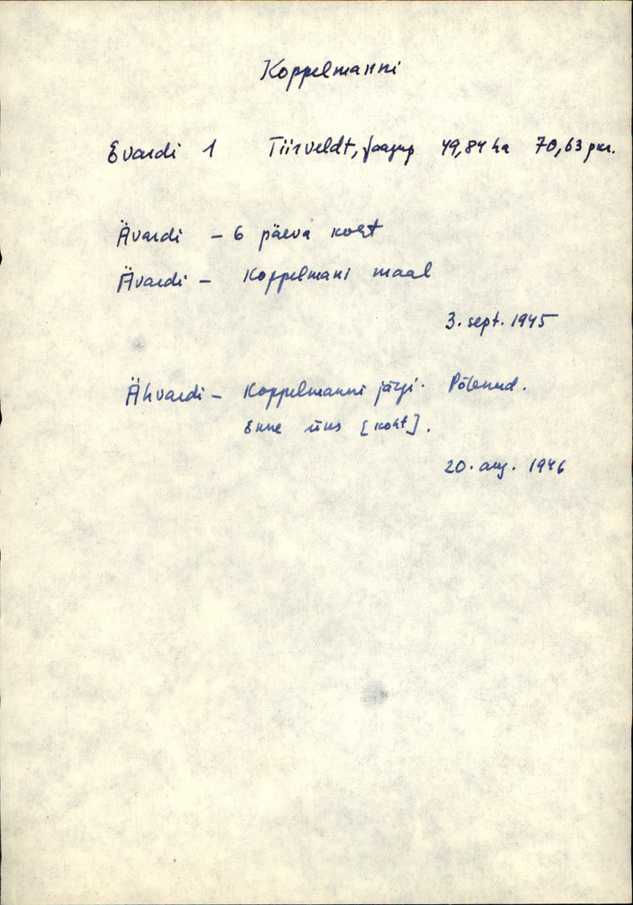 Koppelmanni
Evardi 1 Tiirveldt, Jaagup 49,84 ha 70,63 pkr.
Ävardi – 6 päeva koht
Ävardi – Koppelmani maal
3. sept. 1945
Ähvardi – Koppelmanni järgi. Põlenud.
Enne üks [koht].
20. aug. 1946